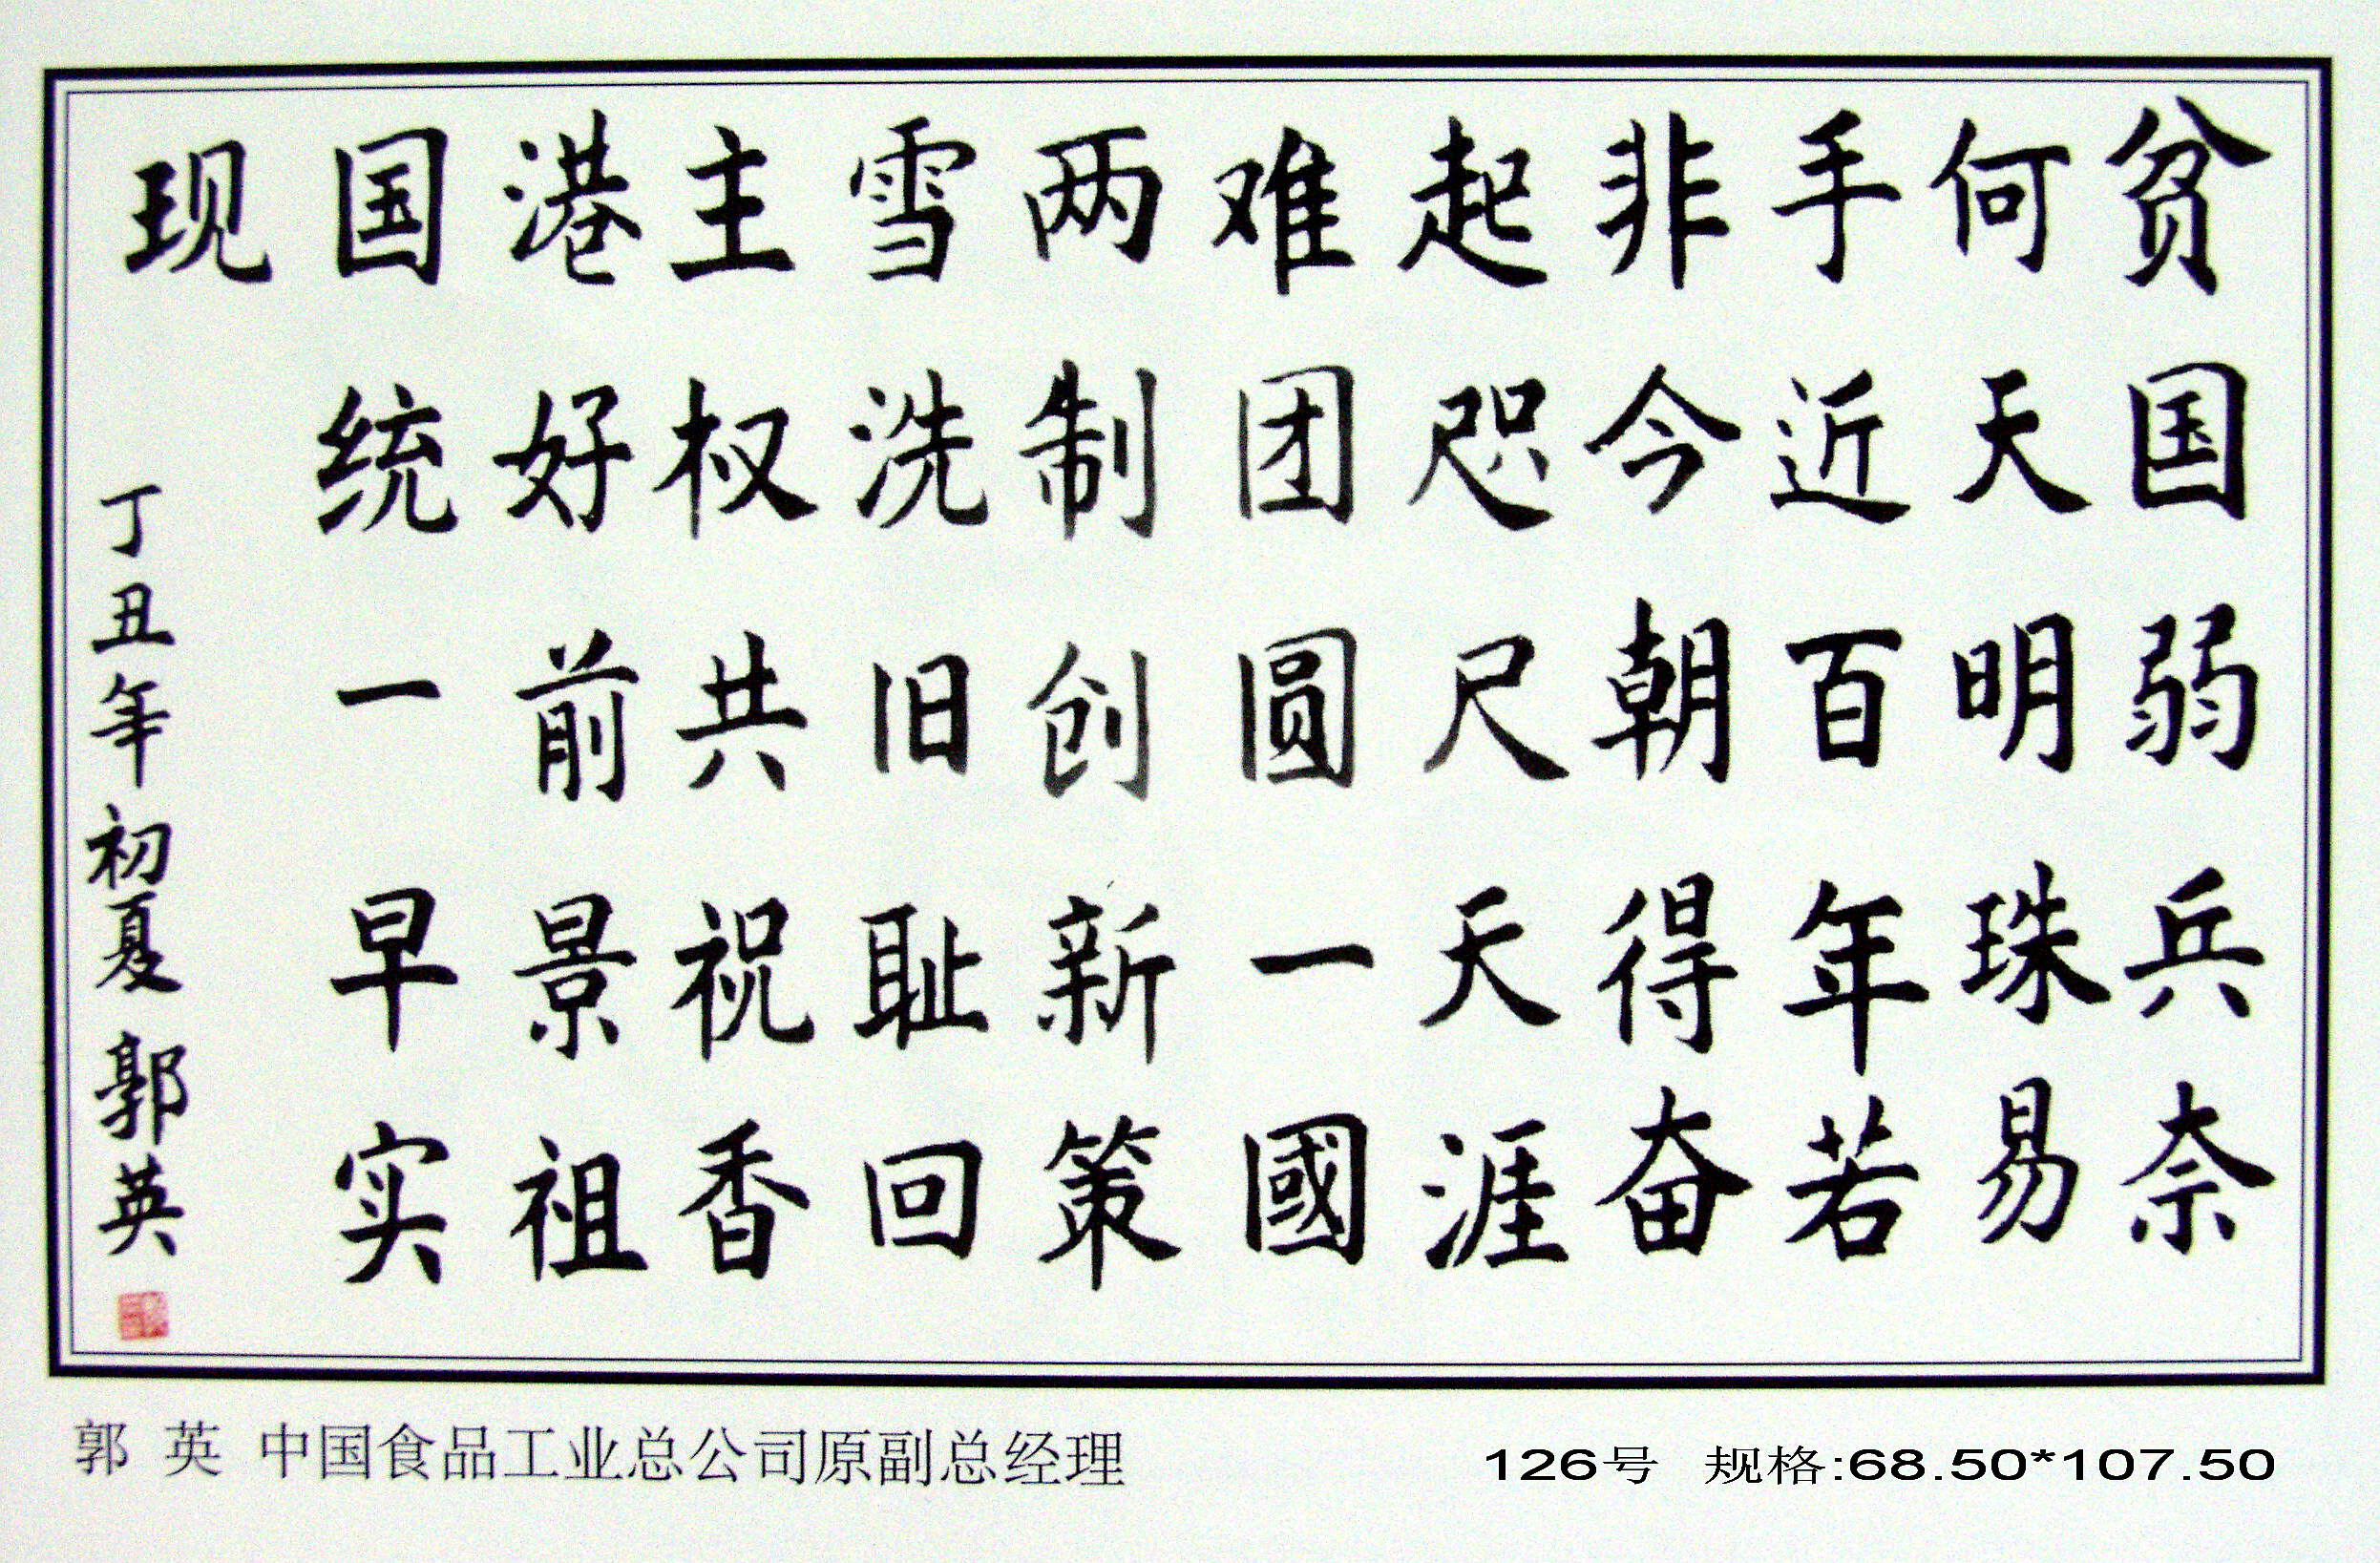 贫国弱兵奈
何天明珠易
手近百年若
非今朝得奋
起咫尺天涯
难团圆一國
两制创新策
雪洗旧耻回
主权共祝香
港好前景祖
国统一早实
现
丁丑年初夏 郭英
郭 英 中国食品工业总公司原副总经理
126号 规格:68.50*107.50